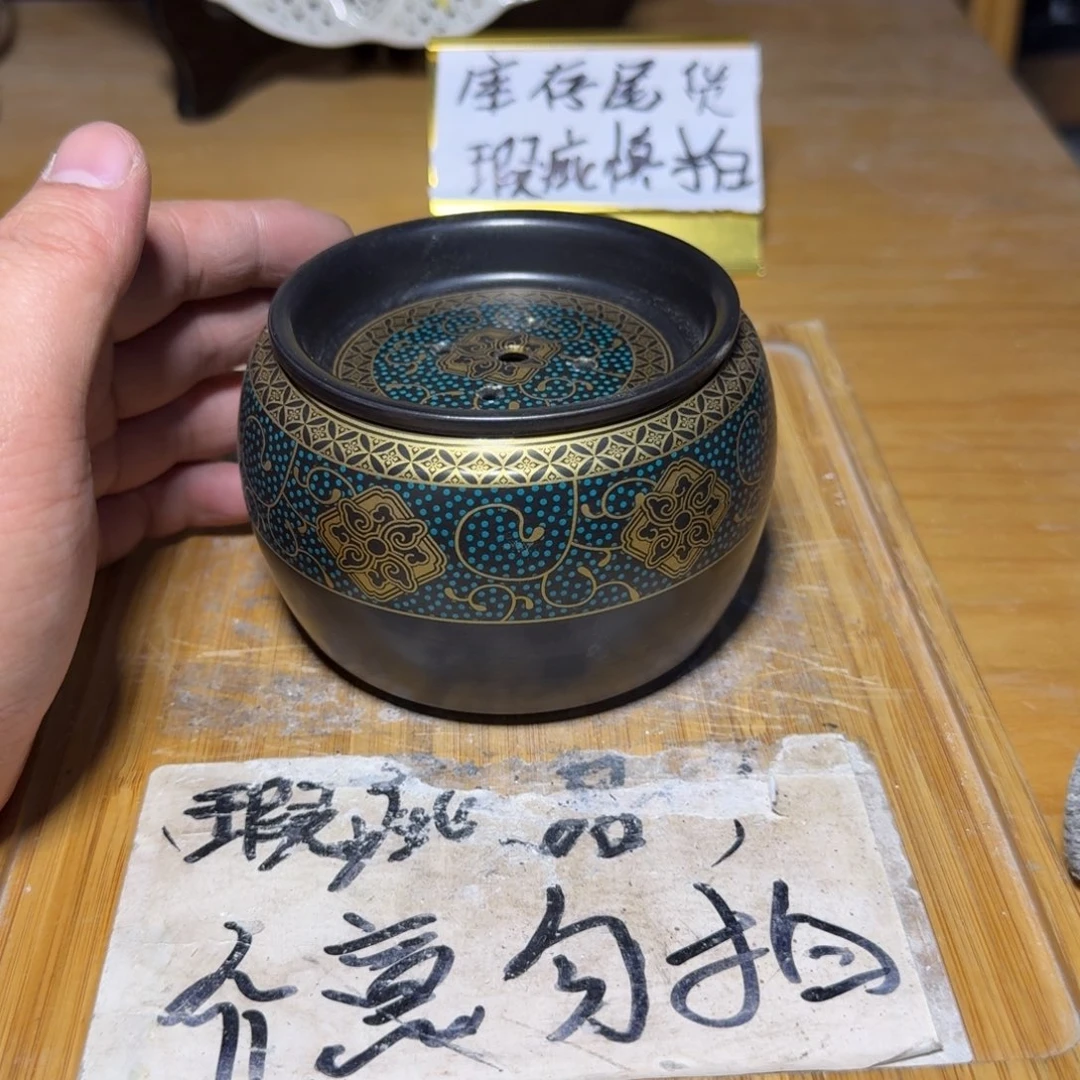 库存尾货
瑕疵慎拍
（瑕疵品）
介意勿拍